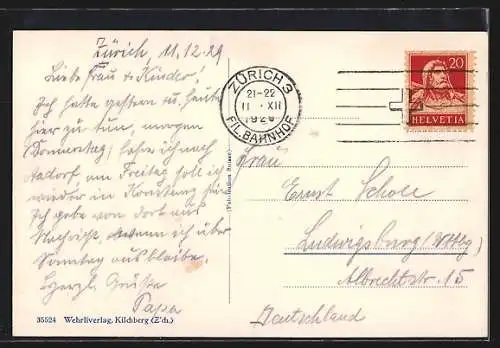 Zürich, 11.12.29
Liebe Frau & Kinder!
Ich hatte gestern u. heute
hier zu tun, morgen
(Donnerstag) fahre ich nach
Aadorf am Freitag soll ich
wieder in Konstanz sein
Ich gebe von dort aus
Nachricht, wenn ich über
Sonntag ausbleibe,
Herzl. Grüsse
Papa
35524 Wehrliverlag, Kilchberg (Z'ch.)
ZÜRICH 3
21-22
11 XII
FIL. BAHNHOF
20
HELVETIA
Frau
Ernst Scholl
Ludwigsburg (Wttbg)
Albrechtstr. 15
Deutschland